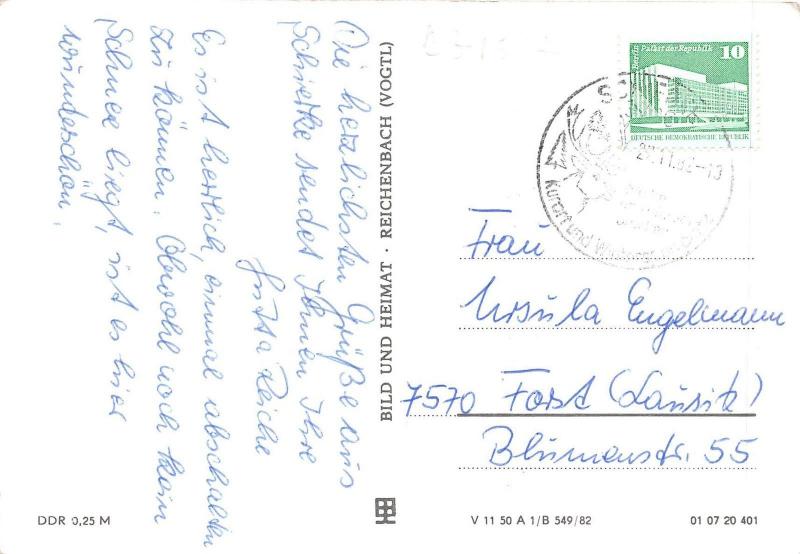 Die herzlichsten Grüße aus
Schierke sendet Ihnen Ihre
Jutta Reiche
Es ist herrlich, einmal abschalten
zu können. Obwohl noch kein
Schnee liegt, ist es hier
wunderschön.
BILD UND HEIMAT · REICHENBACH (VOGTL)
Berlin Palast der Republik 10
DEUTSCHE DEMOKRATISCHE REPUBLIK
Kurort und
Frau
Ursula Engelmann
7570 Forst (Lausitz)
Blumenstr. 55
DDR 0,25 M
V 11 50 A 1/B 549/82
01 07 20 401